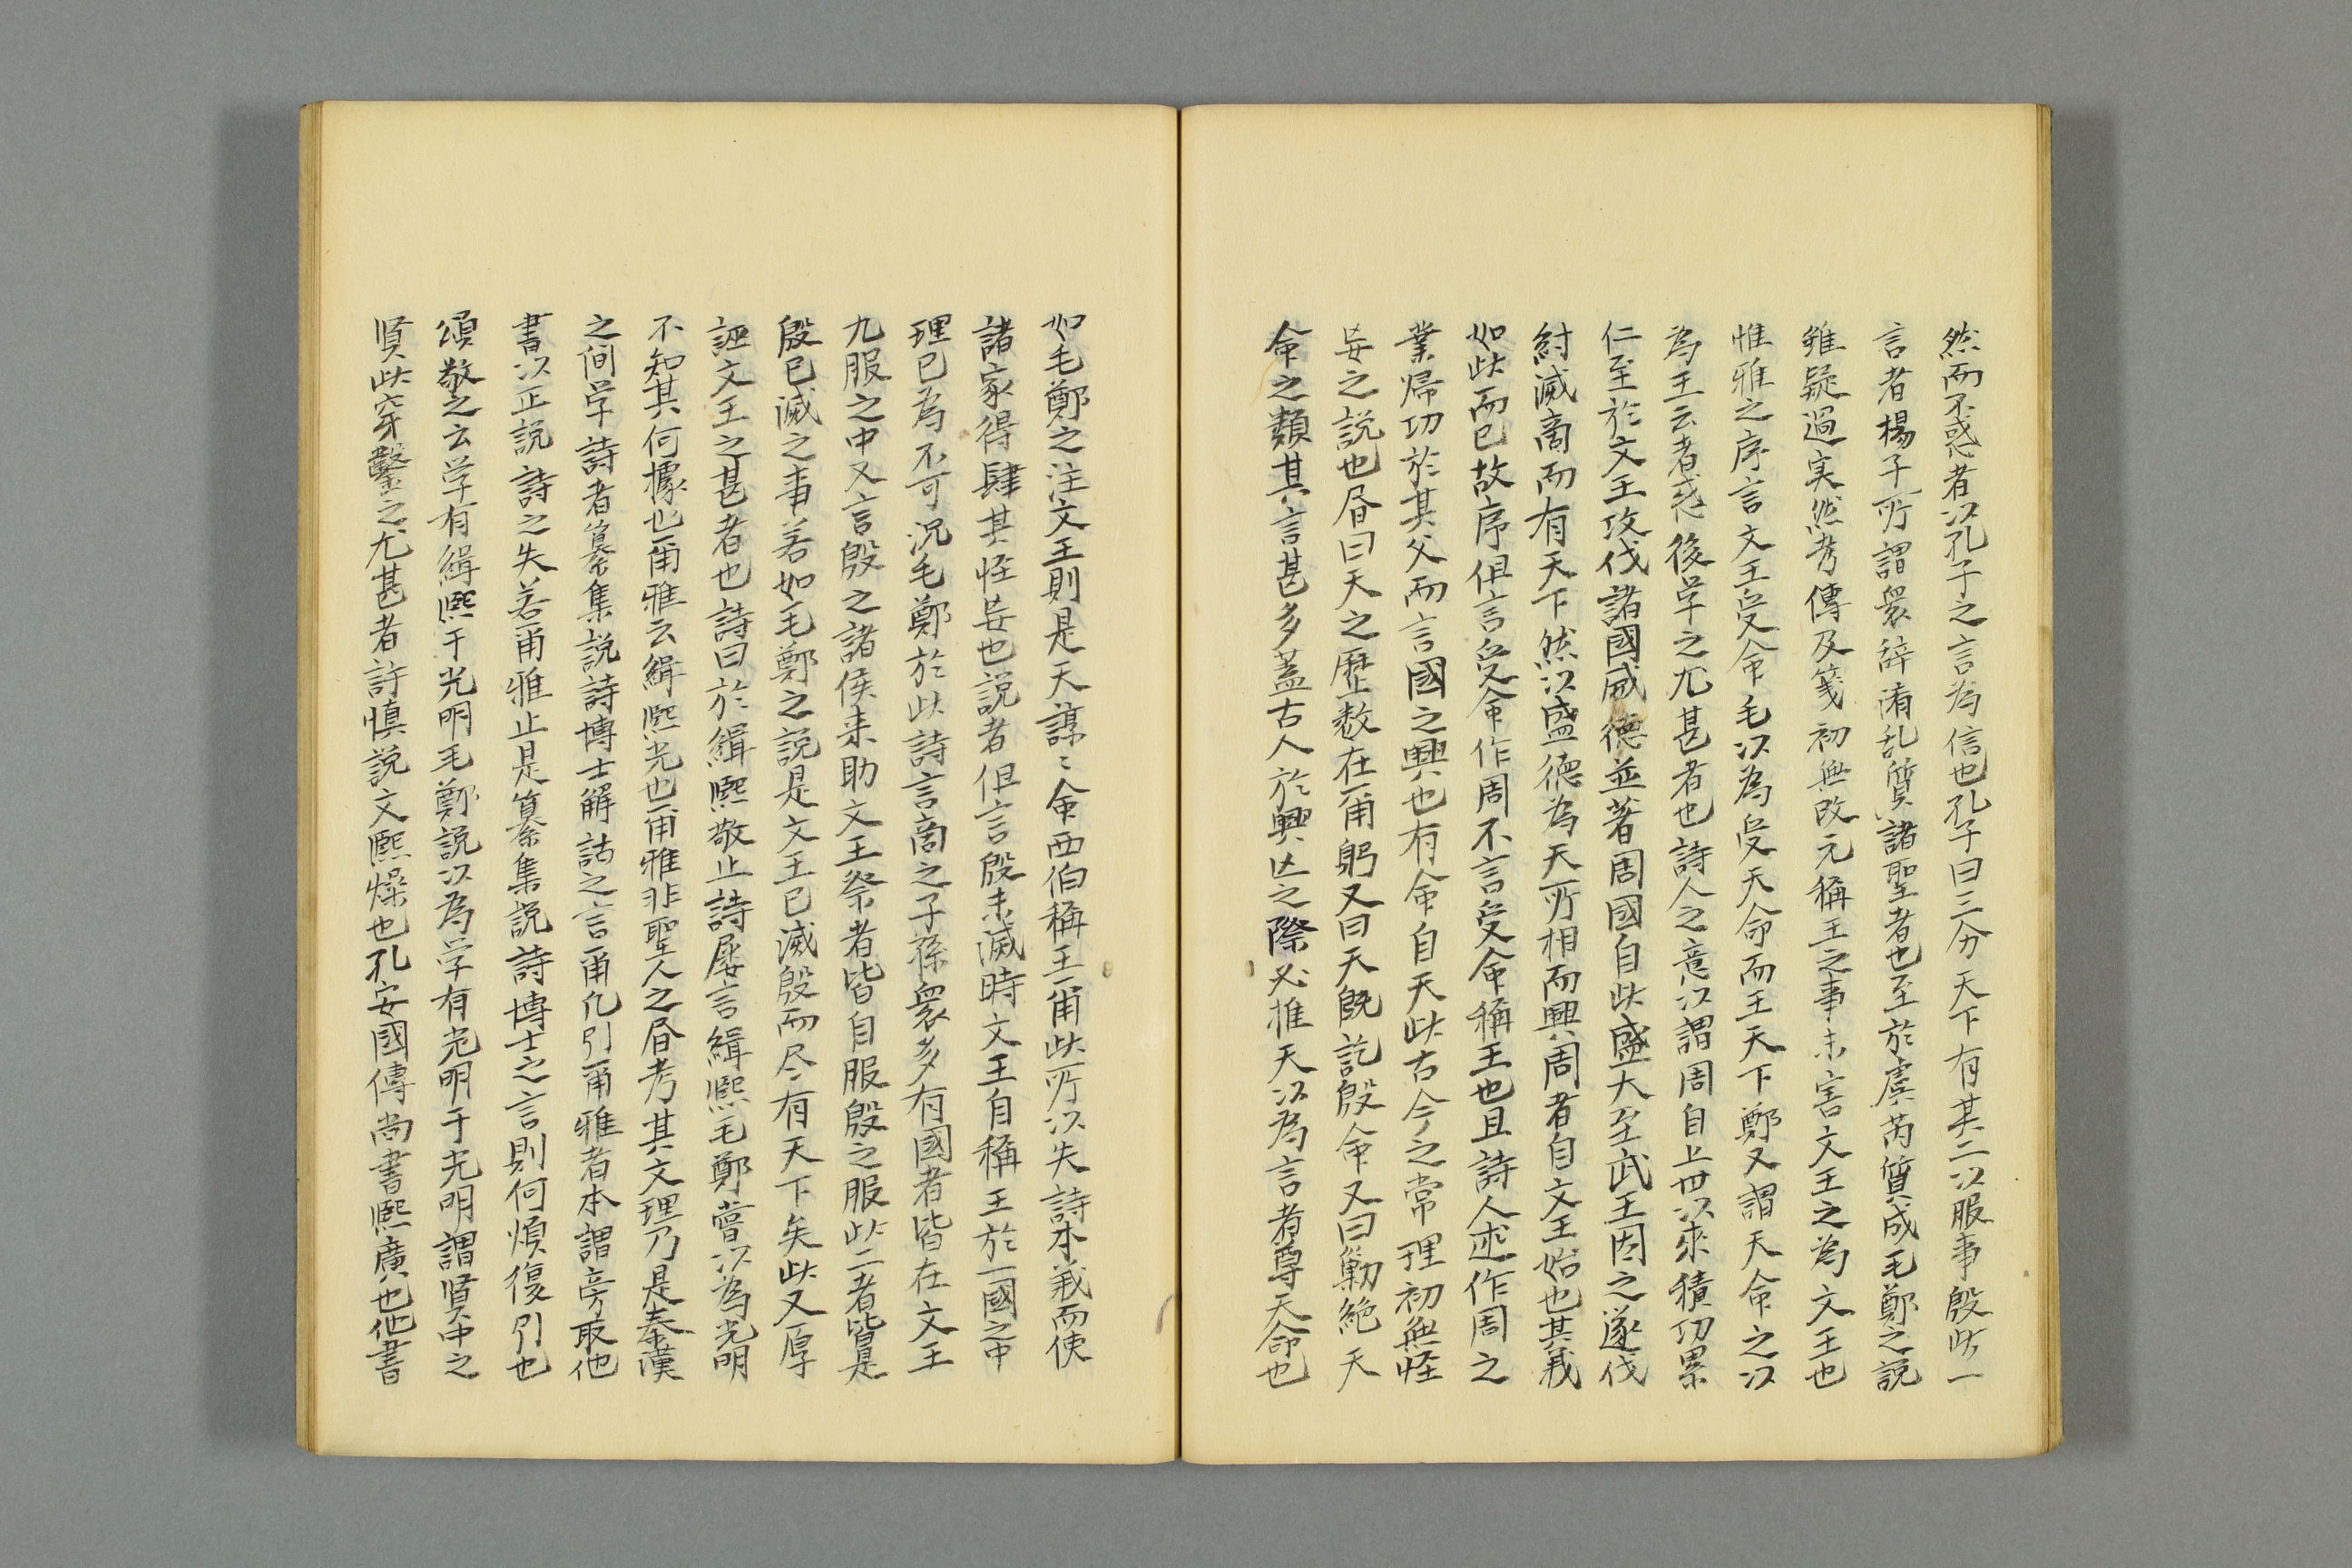 然而不惑者以孔子之言為信也孔子曰三分天下有其二以服事殷此一
言者楊子所謂衆辞淆乱質諸聖者也至於虞芮質成毛鄭之説
雖疑過実然考傳及箋初無改元稱王之事未害文王之為文王也
惟雅之序言文王受命毛以為受天命而王天下鄭又謂天命之以
為王云者惑後学之尤甚者也詩人之意以謂周自上世以來積功累
仁至於文王攻伐諸國威德並著周國自此盛大至武王因之遂伐
紂滅商而有天下然以盛德為天所相而興周者自文王始也其義
如此而已故序但言受命作周不言受命稱王也且詩人述作周之
業帰功於其父而言國之興也有命自天此古今之常理初無怪
妄之説也昏曰天之歷数在爾躬又曰天既訖殷命又曰勦絶天
命之類其言甚多蓋古人於興亡之際必推天以為言者尊天命也
如毛鄭之注文王則是天諄〻命西伯稱王爾此所以失詩本義而使
諸家得肆其怪妄也説者但言殷未滅時文王自稱王於一國之中
理已為不可況毛鄭於此詩言商之子孫衆多有國者皆在文王
九服之中又言殷之諸侯来助文王祭者皆自服殷之服此二者皆是
殷已滅之事若如毛鄭之説是文王已滅殷而尽有天下矣此又厚
誣文王之甚者也詩曰於緝熙敬止詩屡言緝熙毛鄭嘗以為光明
不知其何據也爾雅云緝熙光也爾雅非聖人之昏考其文理乃是秦漢
之间学詩者纂集説詩博士解詁之言爾凡引爾雅者本謂旁取他
書以正説詩之失若爾雅止是纂集説詩博士之言則何煩復引也
頌敬之云学有緝熙于光明毛鄭説以為学有光明于光明謂賢中之
賢此穿鑿之尤甚者許慎説文熙燥也孔安國傳尚書熙廣也他書